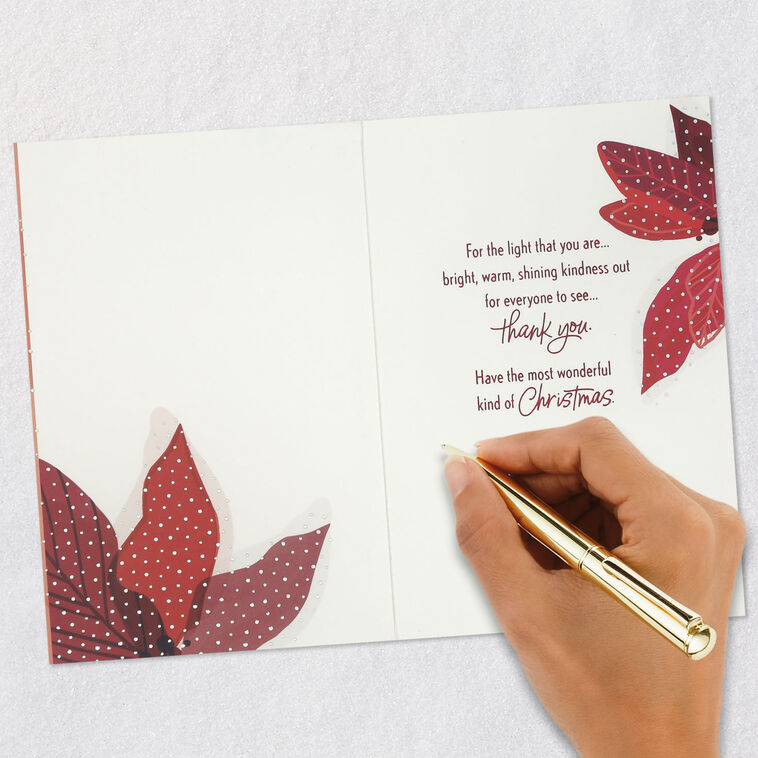 For the light that you are...
bright, warm, shining kindness out
for everyone to see...
thank you.
Have the most wonderful
kind of Christmas.